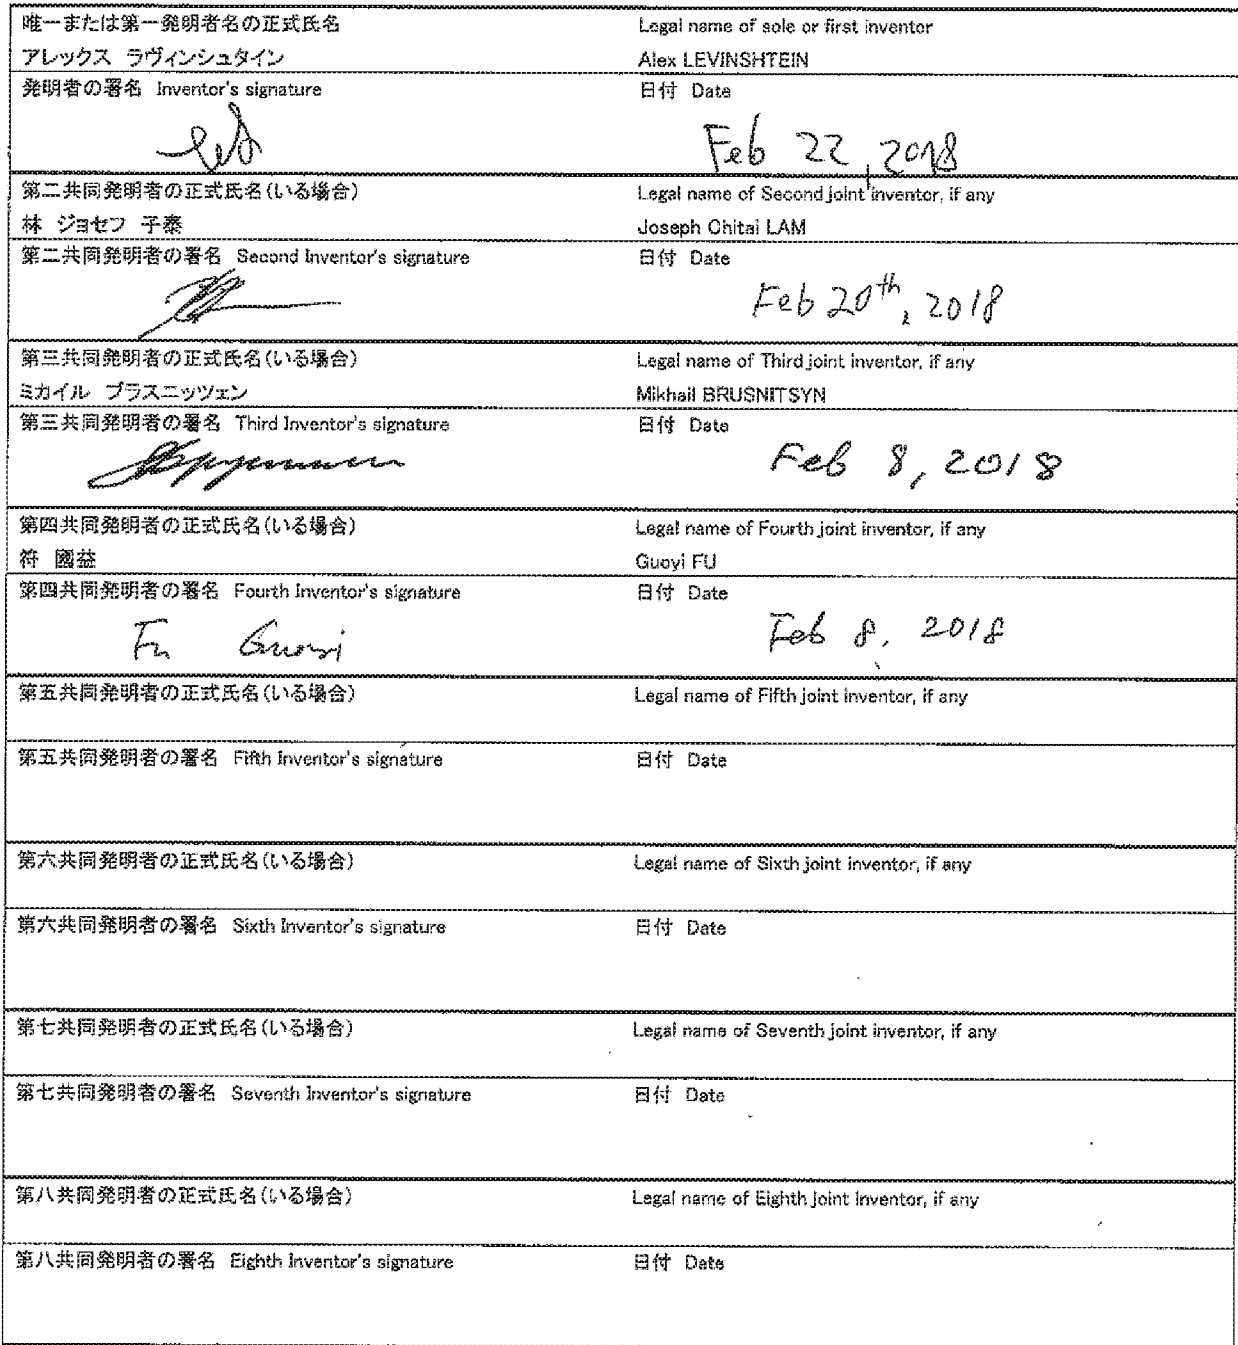 唯一または第一発明者名の正式氏名 Legal name of sole or first inventor
アレックス ラヴィンシュタイン Alex LEVINSHTEIN
発明者の署名 Inventor's signature 日付 Date
Feb 22, 2018
第二共同発明者の正式氏名(いる場合) Legal name of Second joint inventor, if any
林 ジョセフ 子泰 Joseph Chitai LAM
第二共同発明者の署名 Second Inventor's signature 日付 Date
Feb 20th, 2018
第三共同発明者の正式氏名(いる場合) Legal name of Third joint inventor, if any
ミカイル ブラスニッツェン Mikhail BRUSNITSYN
第三共同発明者の署名 Third Inventor's signature 日付 Date
Feb 8, 2018
第四共同発明者の正式氏名(いる場合) Legal name of Fourth joint inventor, if any
符 國益 Guoyi FU
第四共同発明者の署名 Fourth Inventor's signature 日付 Date
Fu Guoyi Feb 8, 2018
第五共同発明者の正式氏名(いる場合) Legal name of Fifth joint inventor, if any
第五共同発明者の署名 Fifth Inventor's signature 日付 Date
第六共同発明者の正式氏名(いる場合) Legal name of Sixth joint inventor, if any
第六共同発明者の署名 Sixth Inventor's signature 日付 Date
第七共同発明者の正式氏名(いる場合) Legal name of Seventh joint inventor, if any
第七共同発明者の署名 Seventh Inventor's signature 日付 Date
第八共同発明者の正式氏名(いる場合) Legal name of Eighth joint inventor, if any
第八共同発明者の署名 Eighth Inventor's signature 日付 Date